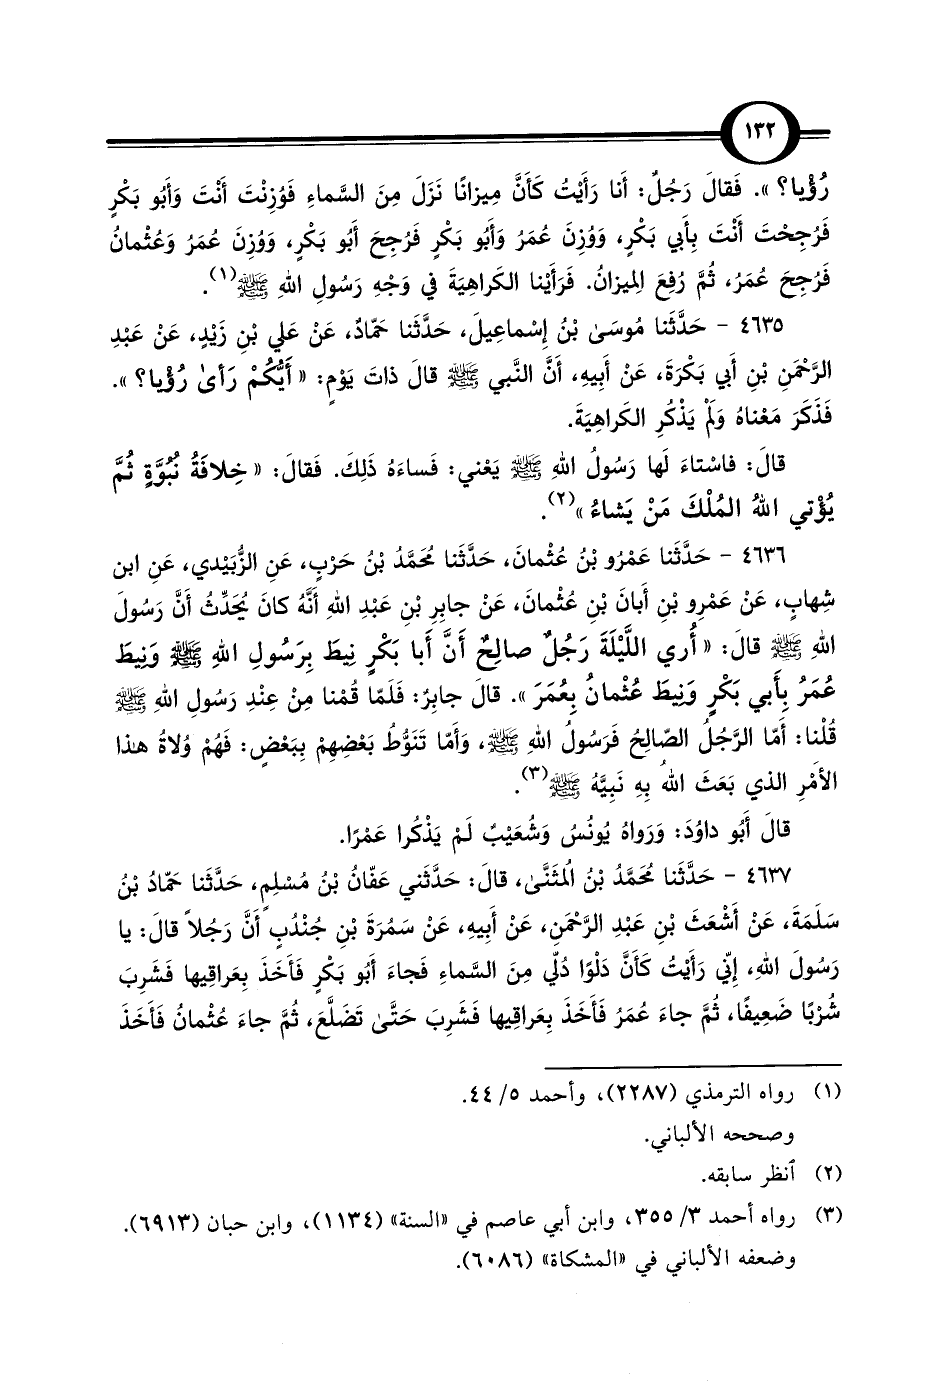 ١٣٢
رُؤْيا؟ ». فَقالَ رَجُلٌ: أَنا رَأَيْتُ كَأَنَّ مِيزانًا نَزَلَ مِنَ السَّماءِ فَوُزِنْتَ أَنْتَ وَأَبُو بَكْرٍ
فَرُجِحْتَ أَنْتَ بِأَبي بَكْرٍ، وَوُزِنَ عُمَرُ وَأَبُو بَكْرٍ فَرُجِحَ أَبُو بَكْرٍ، وَوُزِنَ عُمَرُ وَعُثْمانُ
فَرُجِحَ عُمَرُ، ثُمَّ رُفِعَ المِيزانُ. فَرَأَيْنا الكَراهِيَةَ في وَجْهِ رَسُولِ اللهِ ﷺ(١).
٤٦٣٥ - حَدَّثَنا مُوسَىٰ بْنُ إِسْماعِيلَ، حَدَّثَنا حَمّادٌ، عَنْ علي بْنِ زَيْدٍ، عَنْ عَبْدِ
الرَّحْمَنِ بْنِ أَبي بَكْرَةَ، عَنْ أَبِيهِ، أَنَّ النَّبي ﷺ قالَ ذاتَ يَوْمٍ: « أَيُّكُمْ رَأىٰ رُؤْيا؟ ».
فَذَكَرَ مَعْناهُ وَلَمْ يَذْكُرِ الكَراهِيَةَ.
قالَ: فاسْتاءَ لَها رَسُولُ اللهِ ﷺ يَعْني: فَساءَهُ ذَلِكَ. فَقالَ: « خِلافَةُ نُبُوَّةٍ ثُمَّ
يُؤْتي اللهُ المُلْكَ مَنْ يَشاءُ »(٢).
٤٦٣٦ - حَدَّثَنا عَمْرُو بْنُ عُثْمانَ، حَدَّثَنا مُحَمَّدُ بْنُ حَرْبٍ، عَنِ الزُّبَيْدي، عَنِ ابن
شِهابٍ، عَنْ عَمْرِو بْنِ أَبانَ بْنِ عُثْمانَ، عَنْ جابِرِ بْنِ عَبْدِ اللهِ أَنَّهُ كانَ يُحَدِّثُ أَنَّ رَسُولَ
اللهِ ﷺ قالَ: « أُري اللَّيْلَةَ رَجُلٌ صالِحٌ أَنَّ أَبا بَكْرٍ نِيطَ بِرَسُولِ اللهِ ﷺ وَنِيطَ
عُمَرُ بِأَبي بَكْرٍ وَنِيطَ عُثْمانُ بِعُمَرَ ». قالَ جابِرٌ: فَلَمّا قُمْنا مِنْ عِنْدِ رَسُولِ اللهِ ﷺ
قُلْنا: أَمّا الرَّجُلُ الصّالِحُ فَرَسُولُ اللهِ ﷺ، وَأَمّا تَنَوُّطُ بَعْضِهِمْ بِبَعْضٍ: فَهُمْ وُلاةُ هذا
الأَمْرِ الذي بَعَثَ اللهُ بِهِ نَبِيَّهُ ﷺ(٣).
قالَ أَبُو داوُدَ: وَرَواهُ يُونُسُ وَشُعَيْبٌ لَمْ يَذْكُرا عَمْرًا.
٤٦٣٧ - حَدَّثَنا مُحَمَّدُ بْنُ المُثَنَّىٰ، قالَ: حَدَّثَني عَفّانُ بْنُ مُسْلِمٍ، حَدَّثَنا حَمّادُ بْنُ
سَلَمَةَ، عَنْ أَشْعَثَ بْنِ عَبْدِ الرَّحْمَنِ، عَنْ أَبِيهِ، عَنْ سَمُرَةَ بْنِ جُنْدُبٍ أَنَّ رَجُلاً قالَ: يا
رَسُولَ اللهِ، إِنّي رَأَيْتُ كَأَنَّ دَلْوًا دُلّي مِنَ السَّماءِ فَجاءَ أَبُو بَكْرٍ فَأَخَذَ بِعَراقِيها فَشَرِبَ
شُرْبًا ضَعِيفًا، ثُمَّ جاءَ عُمَرُ فَأَخَذَ بِعَراقِيها فَشَرِبَ حَتَّىٰ تَضَلَّعَ، ثُمَّ جاءَ عُثْمانُ فَأَخَذَ
(١) رواه الترمذي (٢٢٨٧)، وأحمد ٥/ ٤٤.
وصححه الألباني.
(٢) أنظر سابقه.
(٣) رواه أحمد ٣/ ٣٥٥، وابن أبي عاصم في «السنة» (١١٣٤)، وابن حبان (٦٩١٣).
وضعفه الألباني في «المشكاة» (٦٠٨٦).